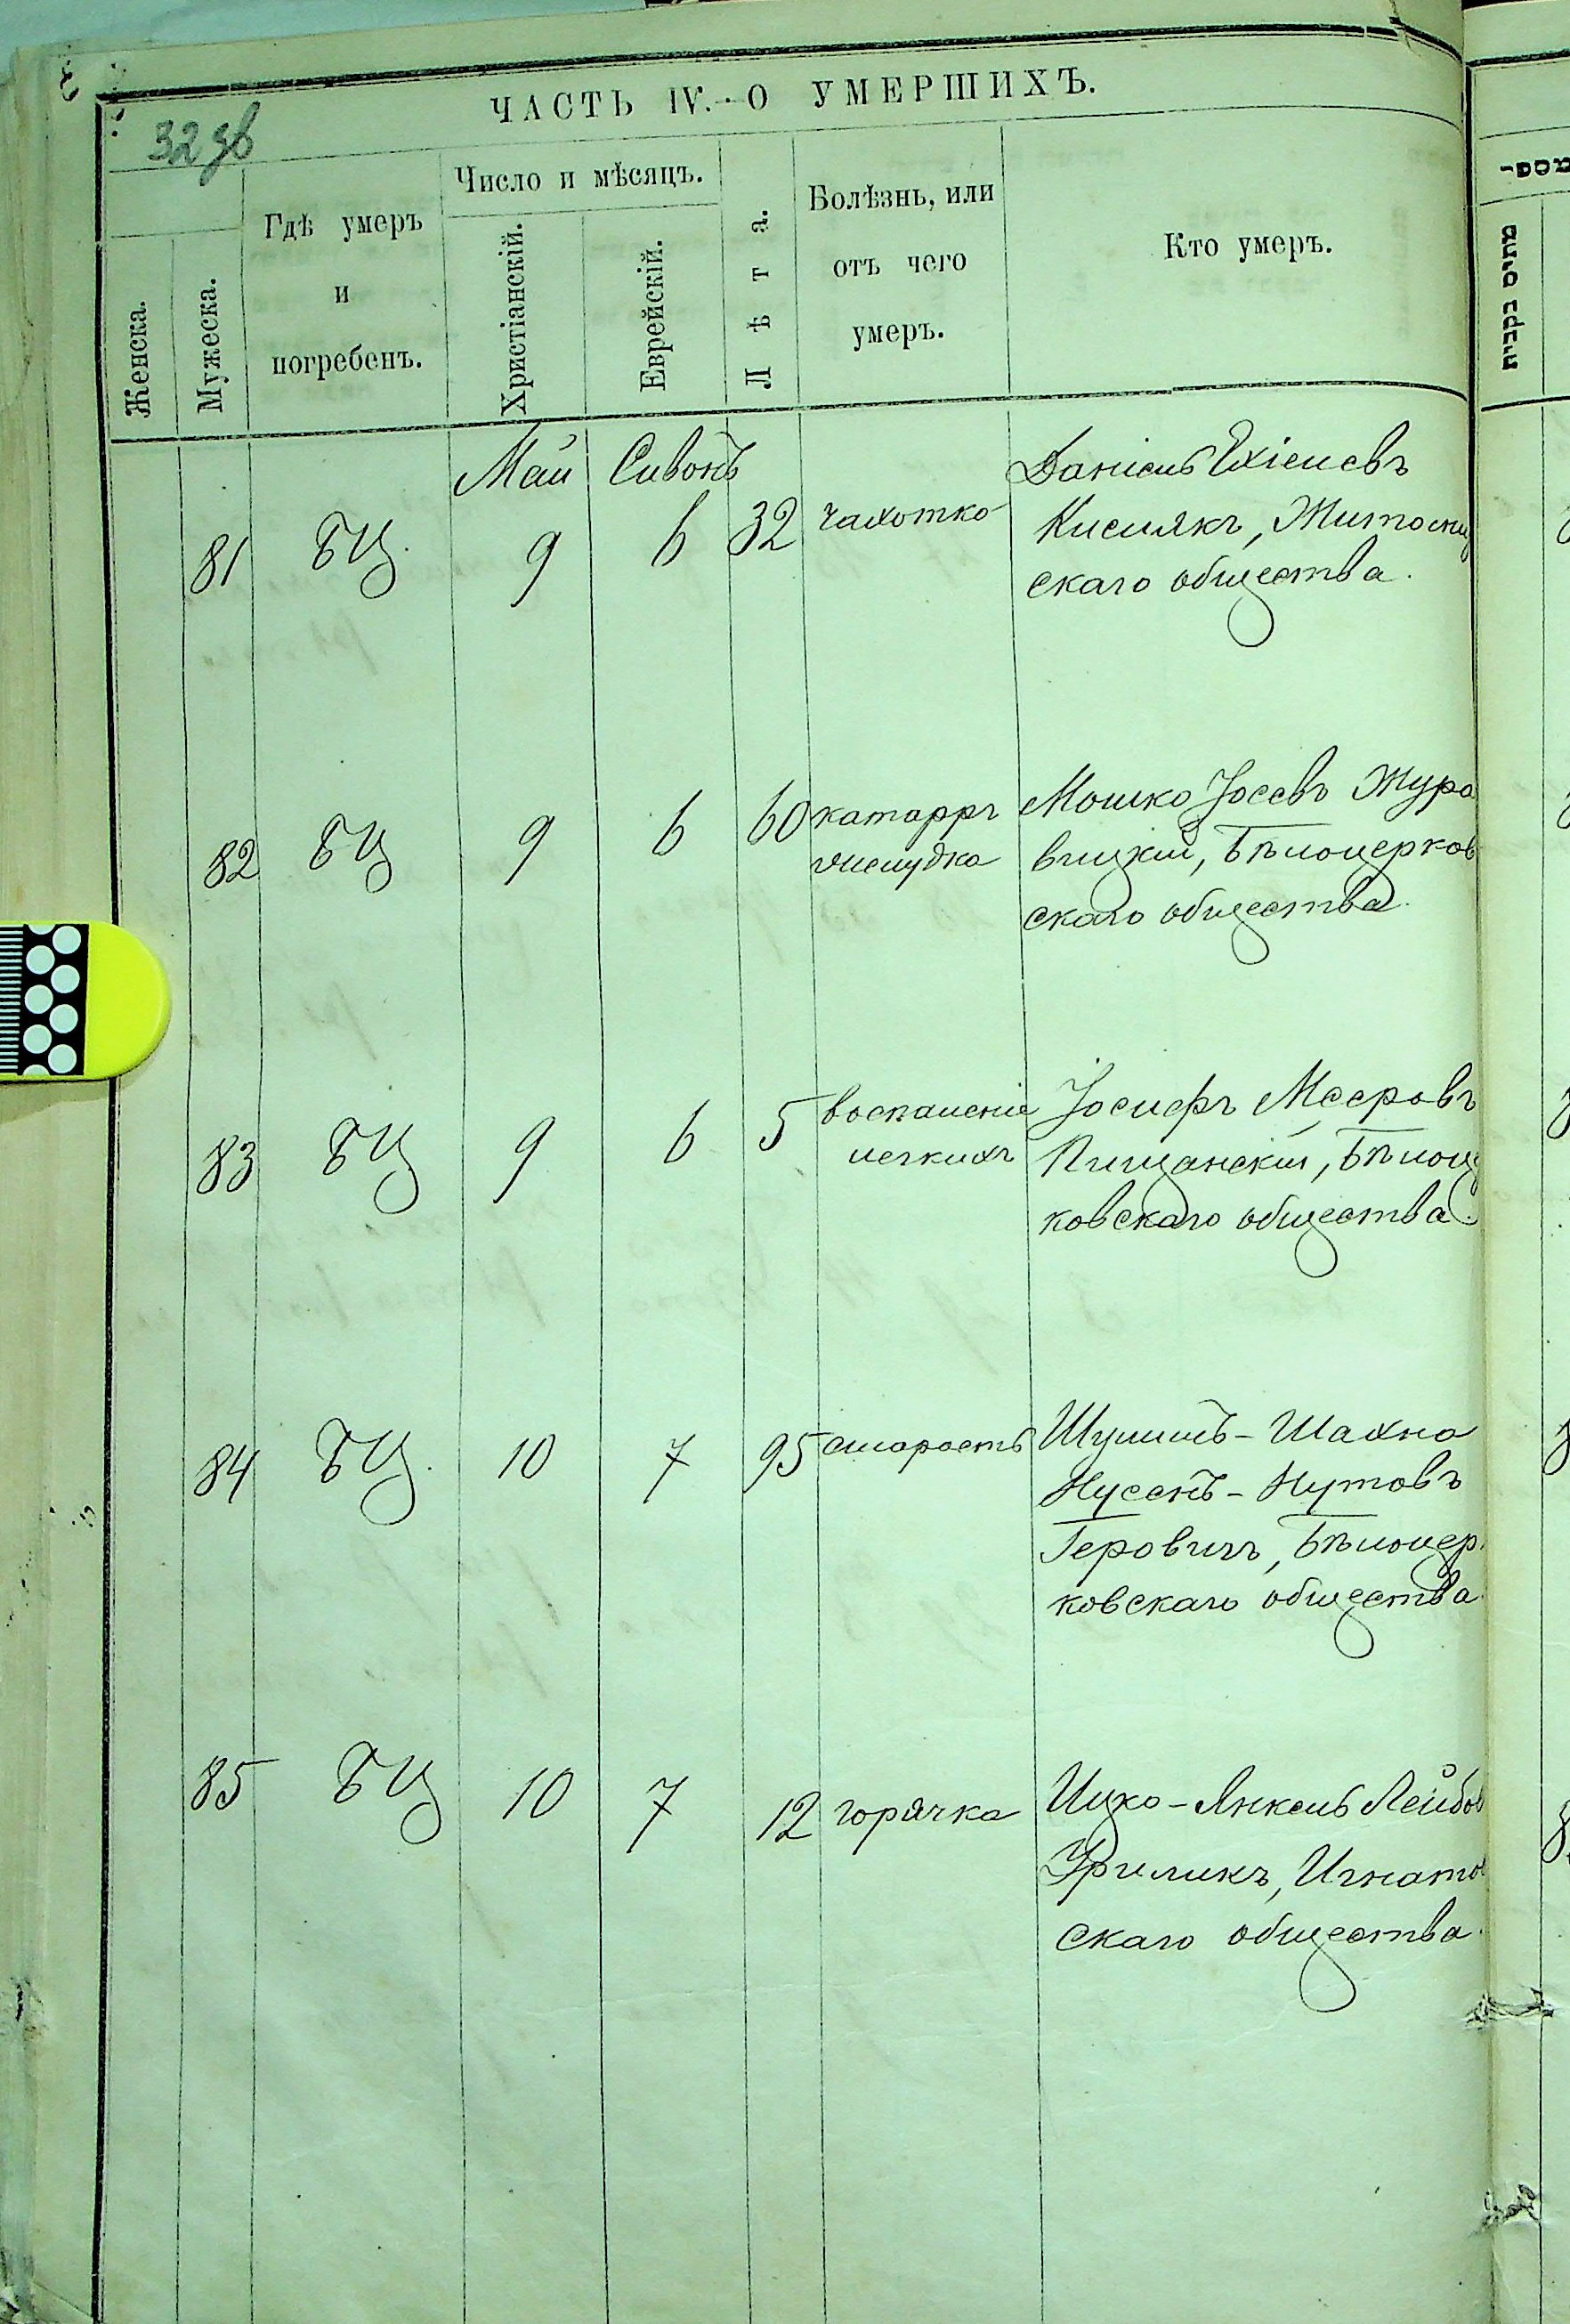 ЧАСТЬ IV.-О УМЕРШИХЪ.
32 зв
Женска.
Мужеска.
Гдѣ умеръ
и
погребенъ.
Число и мѣсяцъ.
Христіанскій.
Еврейскій.
Лѣта.
Болѣзнь, или
отъ чего
умеръ.
Кто умеръ.
Май Сивонъ
81 БЦ. 9 6 32 чахотка
Даніель Ехіелевъ
Кислякъ, Житомир
скаго общества.
82 БЦ 9 6 60 катарръ
желудка
Мошко Іосевъ Жура
вицкій, Бѣлоцерков
скаго общества.
83 БЦ 9 6 5 воспаленіе
легкихъ
Іосифъ Мееровъ
Пищанскій, Бѣлоц
ковскаго общества.
84 БЦ. 10 7 95 старость
Шулимъ-Шахна
Нусенъ-Нутовъ
Геровичъ, Бѣлоцер
ковскаго общества
85 БЦ 10 7 12 горячка
Ицко-Янкель Лейбов
Уриликъ, Игнатов
скаго общества.
מספ-
מתים זכרים